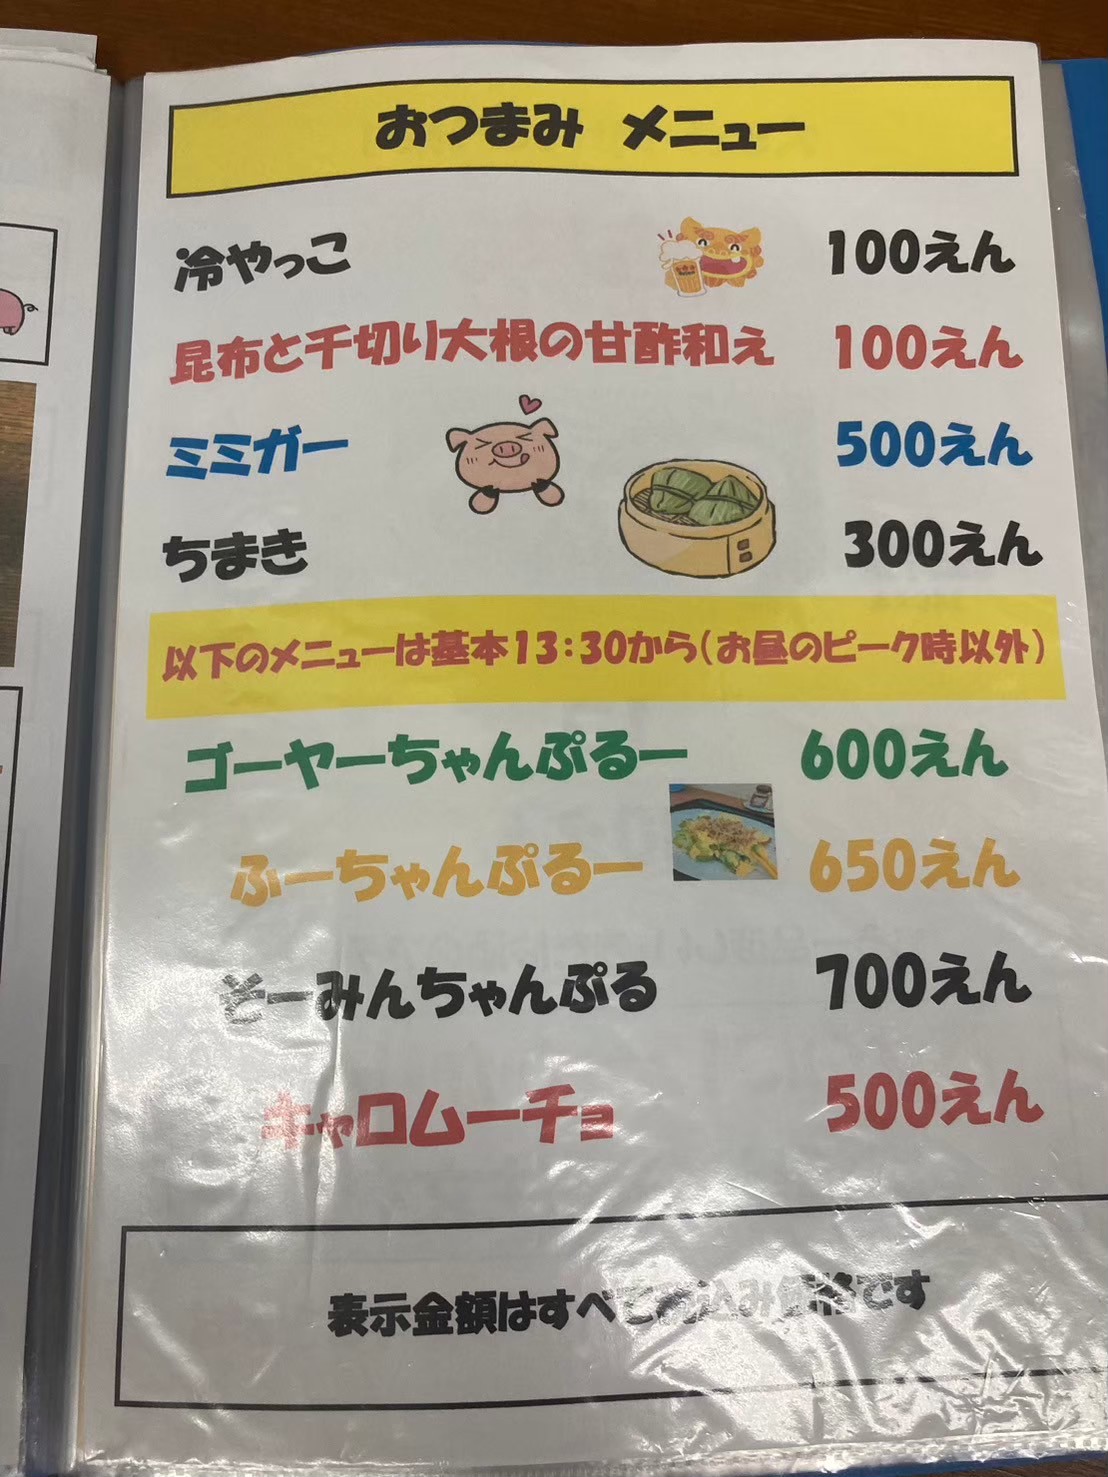 おつまみ メニュー
冷やっこ 100えん
昆布と千切り大根の甘酢和え 100えん
ミミガー 500えん
ちまき 300えん
以下のメニューは基本13:30から(お昼のピーク時以外)
ゴーヤーちゃんぷるー 600えん
ふーちゃんぷるー 650えん
そーみんちゃんぷる 700えん
キャロムーチョ 500えん
表示金額はすべて税込み価格です